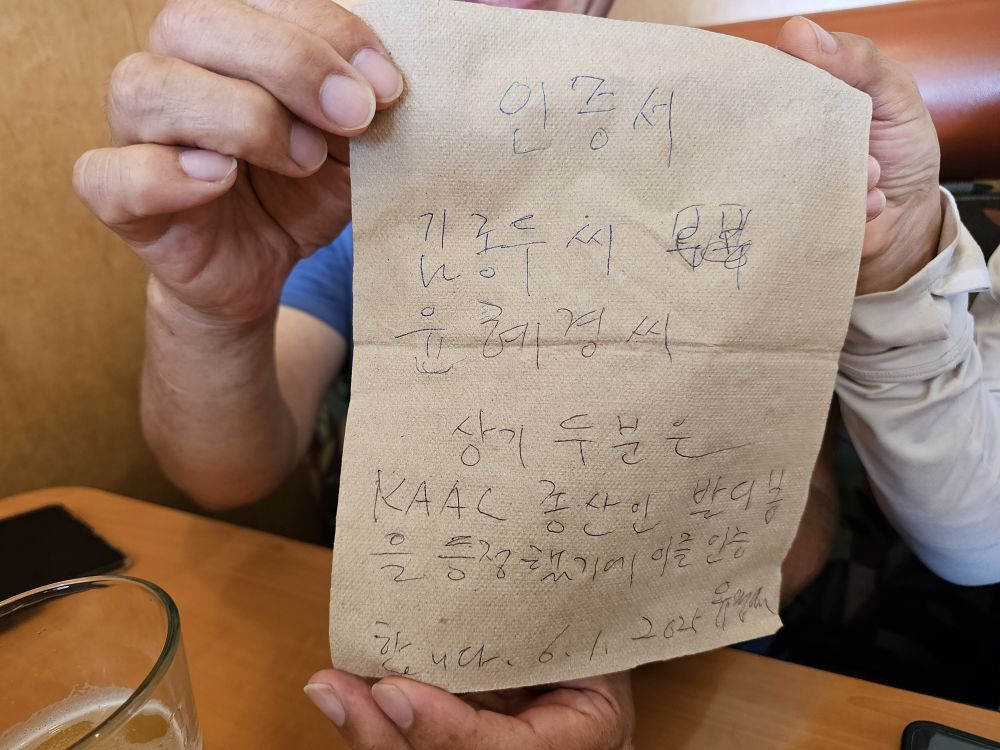 인증서
김종두 씨
윤혜경 씨
상기 두분은
KAAC 종산인 발디봉
을 등정했기에 이를 인증
합니다. 6. 1. 2025